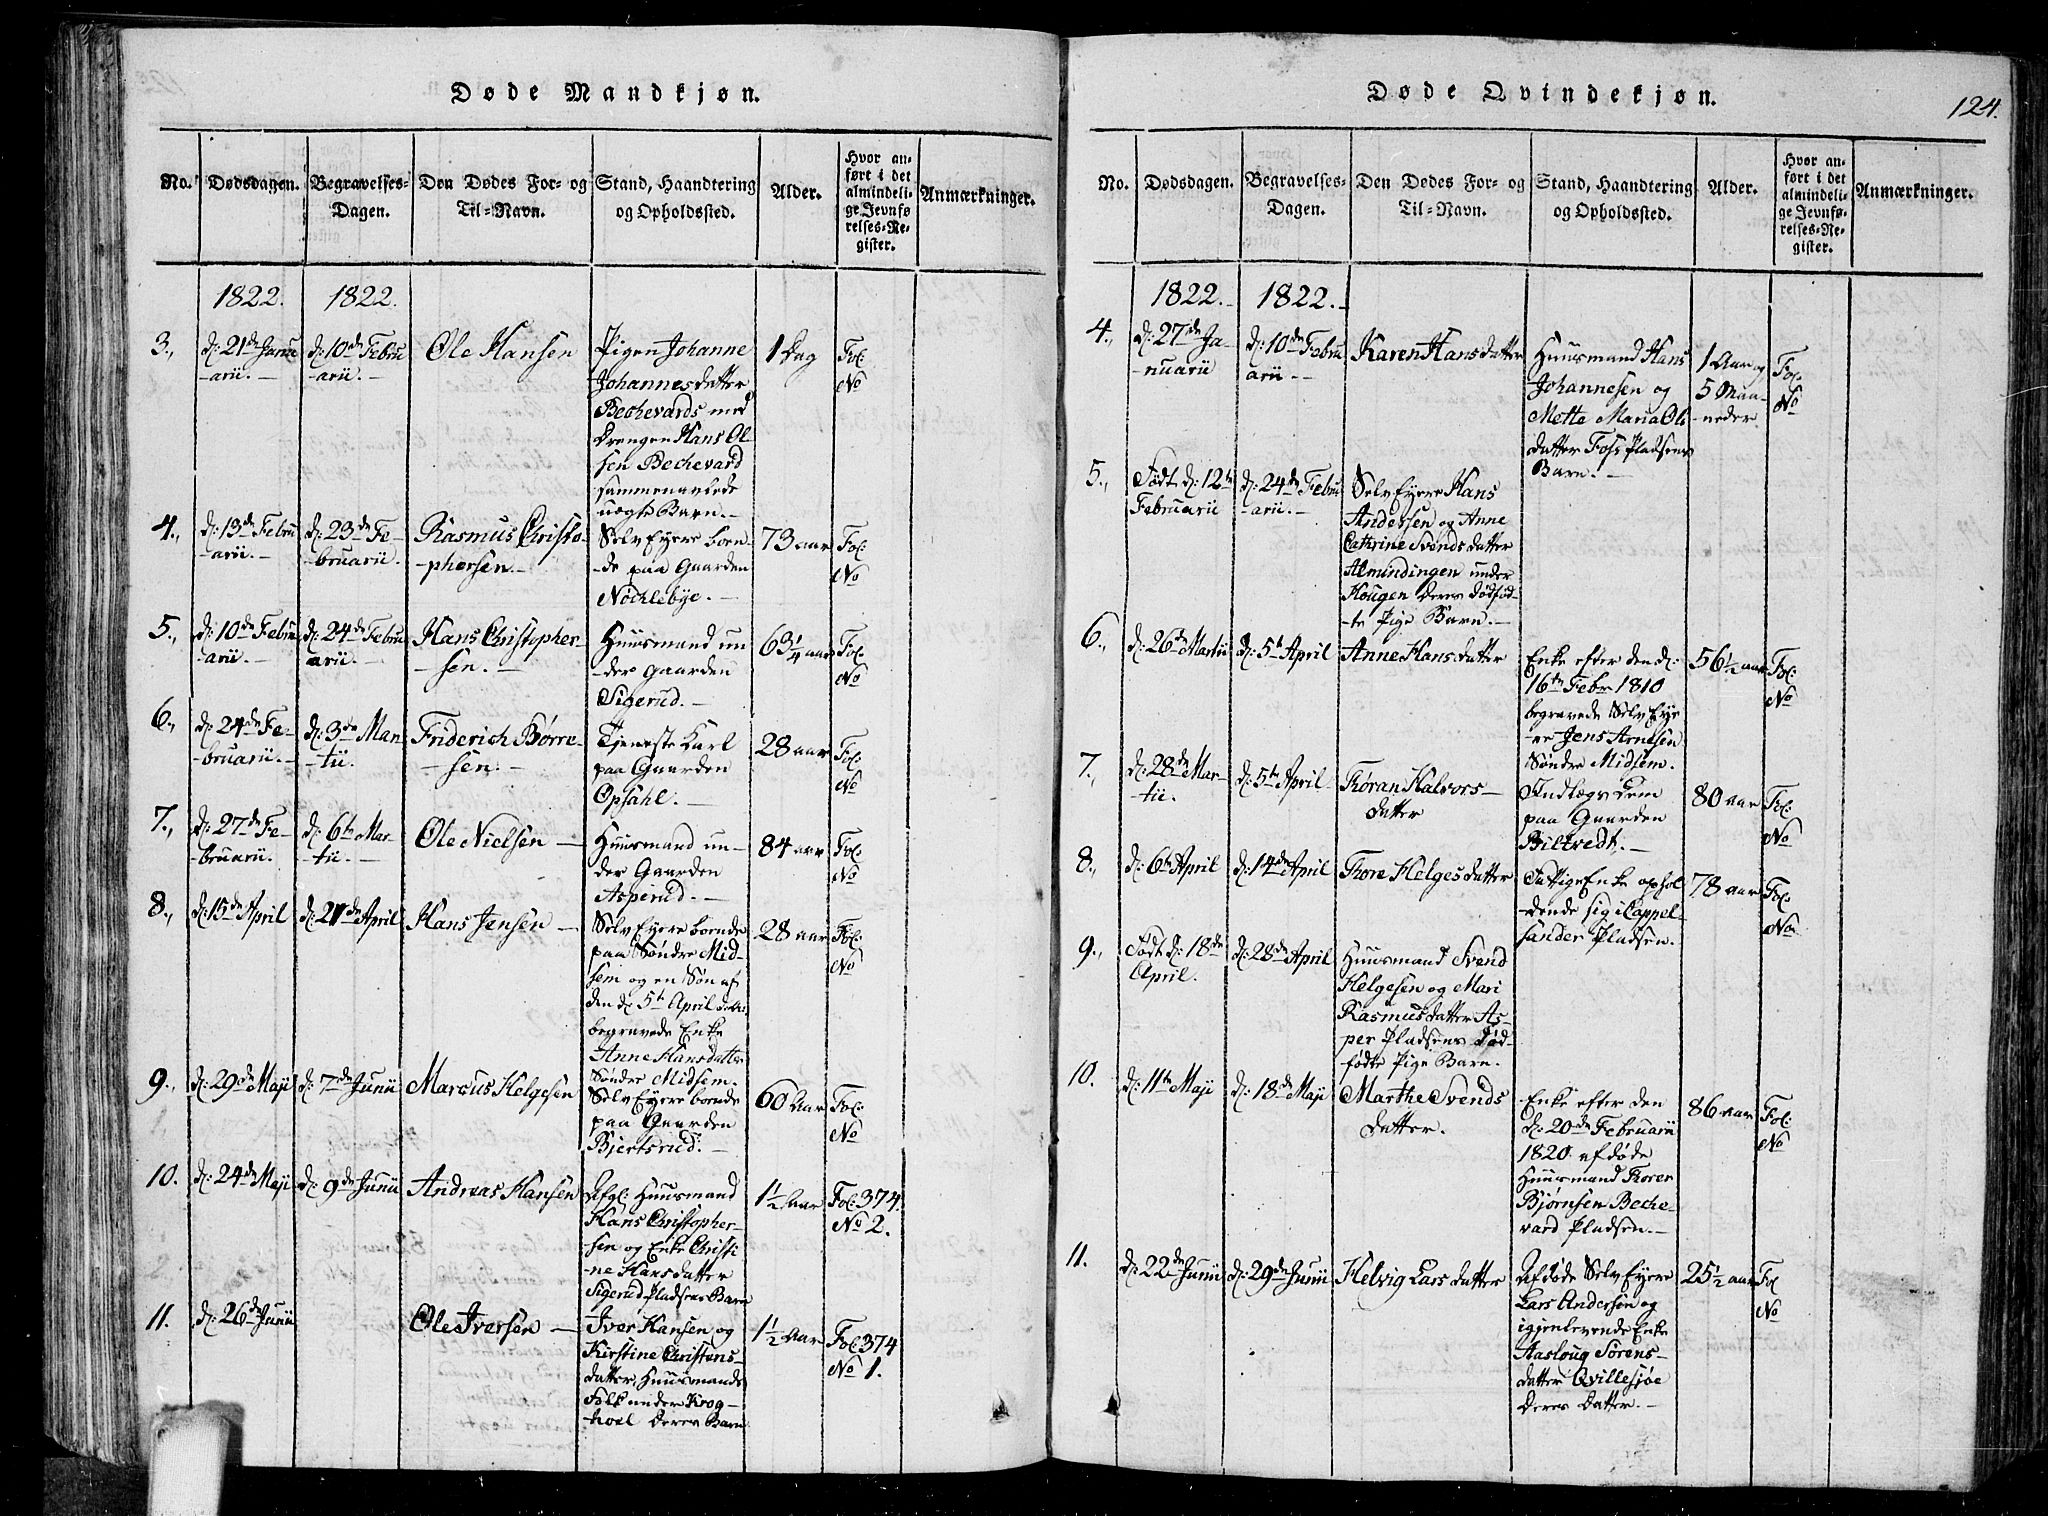 Døde Mandkjøn.
No.
Dødsdagen.
Begravelses-
Dagen.
Den Dødes For- og
Til-Navn.
Stand, Haandtering
og Opholdssted.
Alder.
Hvor an-
ført i det
almindeli-
ge Jevnfø
relses-Re-
gister.
Anmærkninger.
1822.
1822.
3.,
d: 21de Janu
-arii.-
d: 10de Febru
arii.-
Ole Hansen
Pigen Johanne
Johannesdatter
Bechevards med
Drengen Hans Ol
sen Bechevard
sammenavlede
uægte Barn.-
1 Dag
Fol:
No
4.,
d: 13de Febru
-arii.-
d: 23de Fe-
-bruarii.
Rasmus Christo-
-phersen.-
Selv Eyere boen-
-de paa Gaarden
Nochlebye.-
73 aar
Fol:
No
5.,
d: 10de Febru
arii.-
d: 24de Febru
arii.-
Hans Christopher-
-sen.-
Huusmand un
-der Gaarden
Sigerud.-
63 1/4 aar
Fol:
No
6.,
d: 24de Fe-
-bruarii.-
d: 3de Mar
-tii.-
Friderich Børre-
-sen.-
Tjeneste Karl
paa Gaarden
Opsahl.-
28 aar
Fol:
No
7.,
d: 27de Fe-
-bruarii.
d: 6te Mar-
-tii.-
Ole Nielsen-
Huusmand un-
der Gaarden
Asperud.-
84 aar
Fol:
No
8.,
d: 15de April
d: 21de April
Hans Jensen-
Selv Eyere boende
paa Søndre Mid-
sem og en Søn af
den d: 5te April
begravede Enke
Anne Hansdatter
Søndre Midsem.
28 aar
Fol:
No
9.,
d: 29de Maji
d: 7de Junii
Marcus Helgesen
Selv Eyere boende
paa Gaarden
Bjertsrud.-
60 Aar
Fol:
No
10.
d: 24de Maji
d: 9de Junii
Andreas Hansen
Afgl: Huusmand
Hans Christopher-
sen og Enke Christi
-ne Hansdatter
Sigerud Pladsens Barn
1 1/2 Aar
Fol: 374.
No 2.
11.
d: 26de Junii
Ole Iversen-
Iver Hansen og
Kirstine Christens-
datter, Huusmands
Folk under Krog-
-hoel deres Barn
1 1/2 Aar
Fol: 374
No 1.
Døde Qvindekjøn.
124.
No.
Dødsdagen.
Begravelses-
Dagen.
Den Dødes For- og
Til-Navn.
Stand, Haandtering
og Opholdssted.
Alder.
Hvor an-
ført i det
almindeli-
ge Jevnfø-
relses-Re-
gister.
Anmærkninger.
1822.-
1822.-
4.,
d: 27de Ja-
-nuarii
d: 10de Febru
arii.-
Karen Hansdatter
Huusmand Hans
Johannesen og
Mette Maria Ols
datter Foss Pladsens
Barn.-
1 Aar og
5 Maa-
-neder
Fol:
No
5.,
Født d: 12te
Februarii
d: 24de Febru
-arii.-
Selv Eyere Hans
Andersen og Anne
Cathrine Svendsdatter
Almindingen under
Hougen deres dødfød-
-te Pige Barn.-
6.,
d: 26de Martii
d: 5te April
Anne Hansdatter
Enke efter den d:
16te Febr 1810
begravede Selv Eye
-re Jens Arnesen
Søndre Midsem.
56 1/2 aar
Fol:
No
7.,
d: 28de Mar-
-tii.
d: 5te April
Thoran Halvors-
datter
Indlægs Lem
paa Gaarden
Biltvedt,.-
80 aar
Fol:
No
8.,
d: 6te April
d: 14de April
Thore Helgesdatter
Fattig Enke ophol
-dende sig i Cappel-
sander Pladsen.
78 aar
Fol:
No
9.,
Født d: 18de
April.
d: 28de April
Huusmand Svend
Helgesen og Mari
Rasmusdatter As-
per Pladsens død-
-fødte Pige Barn.
10.
d: 11te Maji
d: 18de Maji
Marthe Svends
datter.
Enke efter den
d: 20de Februarii
1820. afdøde
Huusmand Thorer
Bjørnsen Beche-
vard Pladsen.-
86 aar
Fol:
No
11.
d: 22de Junii
d: 29de Junii
Helvig Larsdatter
Afdøde Selv Eyere
Lars Andersen og
igjenlevende Enke
Aasloug Sørens-
datter Qvillesjøe
deres Datter.-
25 1/2 aar
Fol
No